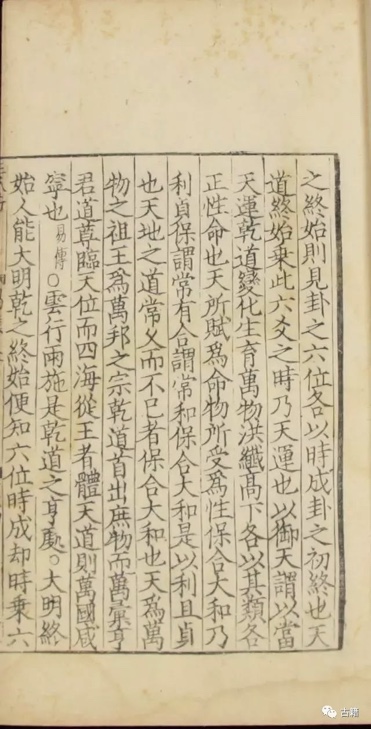 之終始則見卦之六位各以時成卦之初終也天
道終始乘此六爻之時乃天運也以御天謂以當
天運乾道變化生育萬物洪纎髙下各以其類各
正性命也天所賦爲命物所受爲性保合大和乃
利貞保謂常有合謂常和保合大和是以利且貞
也天地之道常久而不已者保合大和也天爲萬
物之祖王爲萬邦之宗乾道首出庶物而萬彙亨
君道尊臨天位而四海從王者體天道則萬國咸
寧也易傳○雲行雨施是乾道之亨處○大明終
始人能大明乾之終始便知六位時成却時乘六
古籍